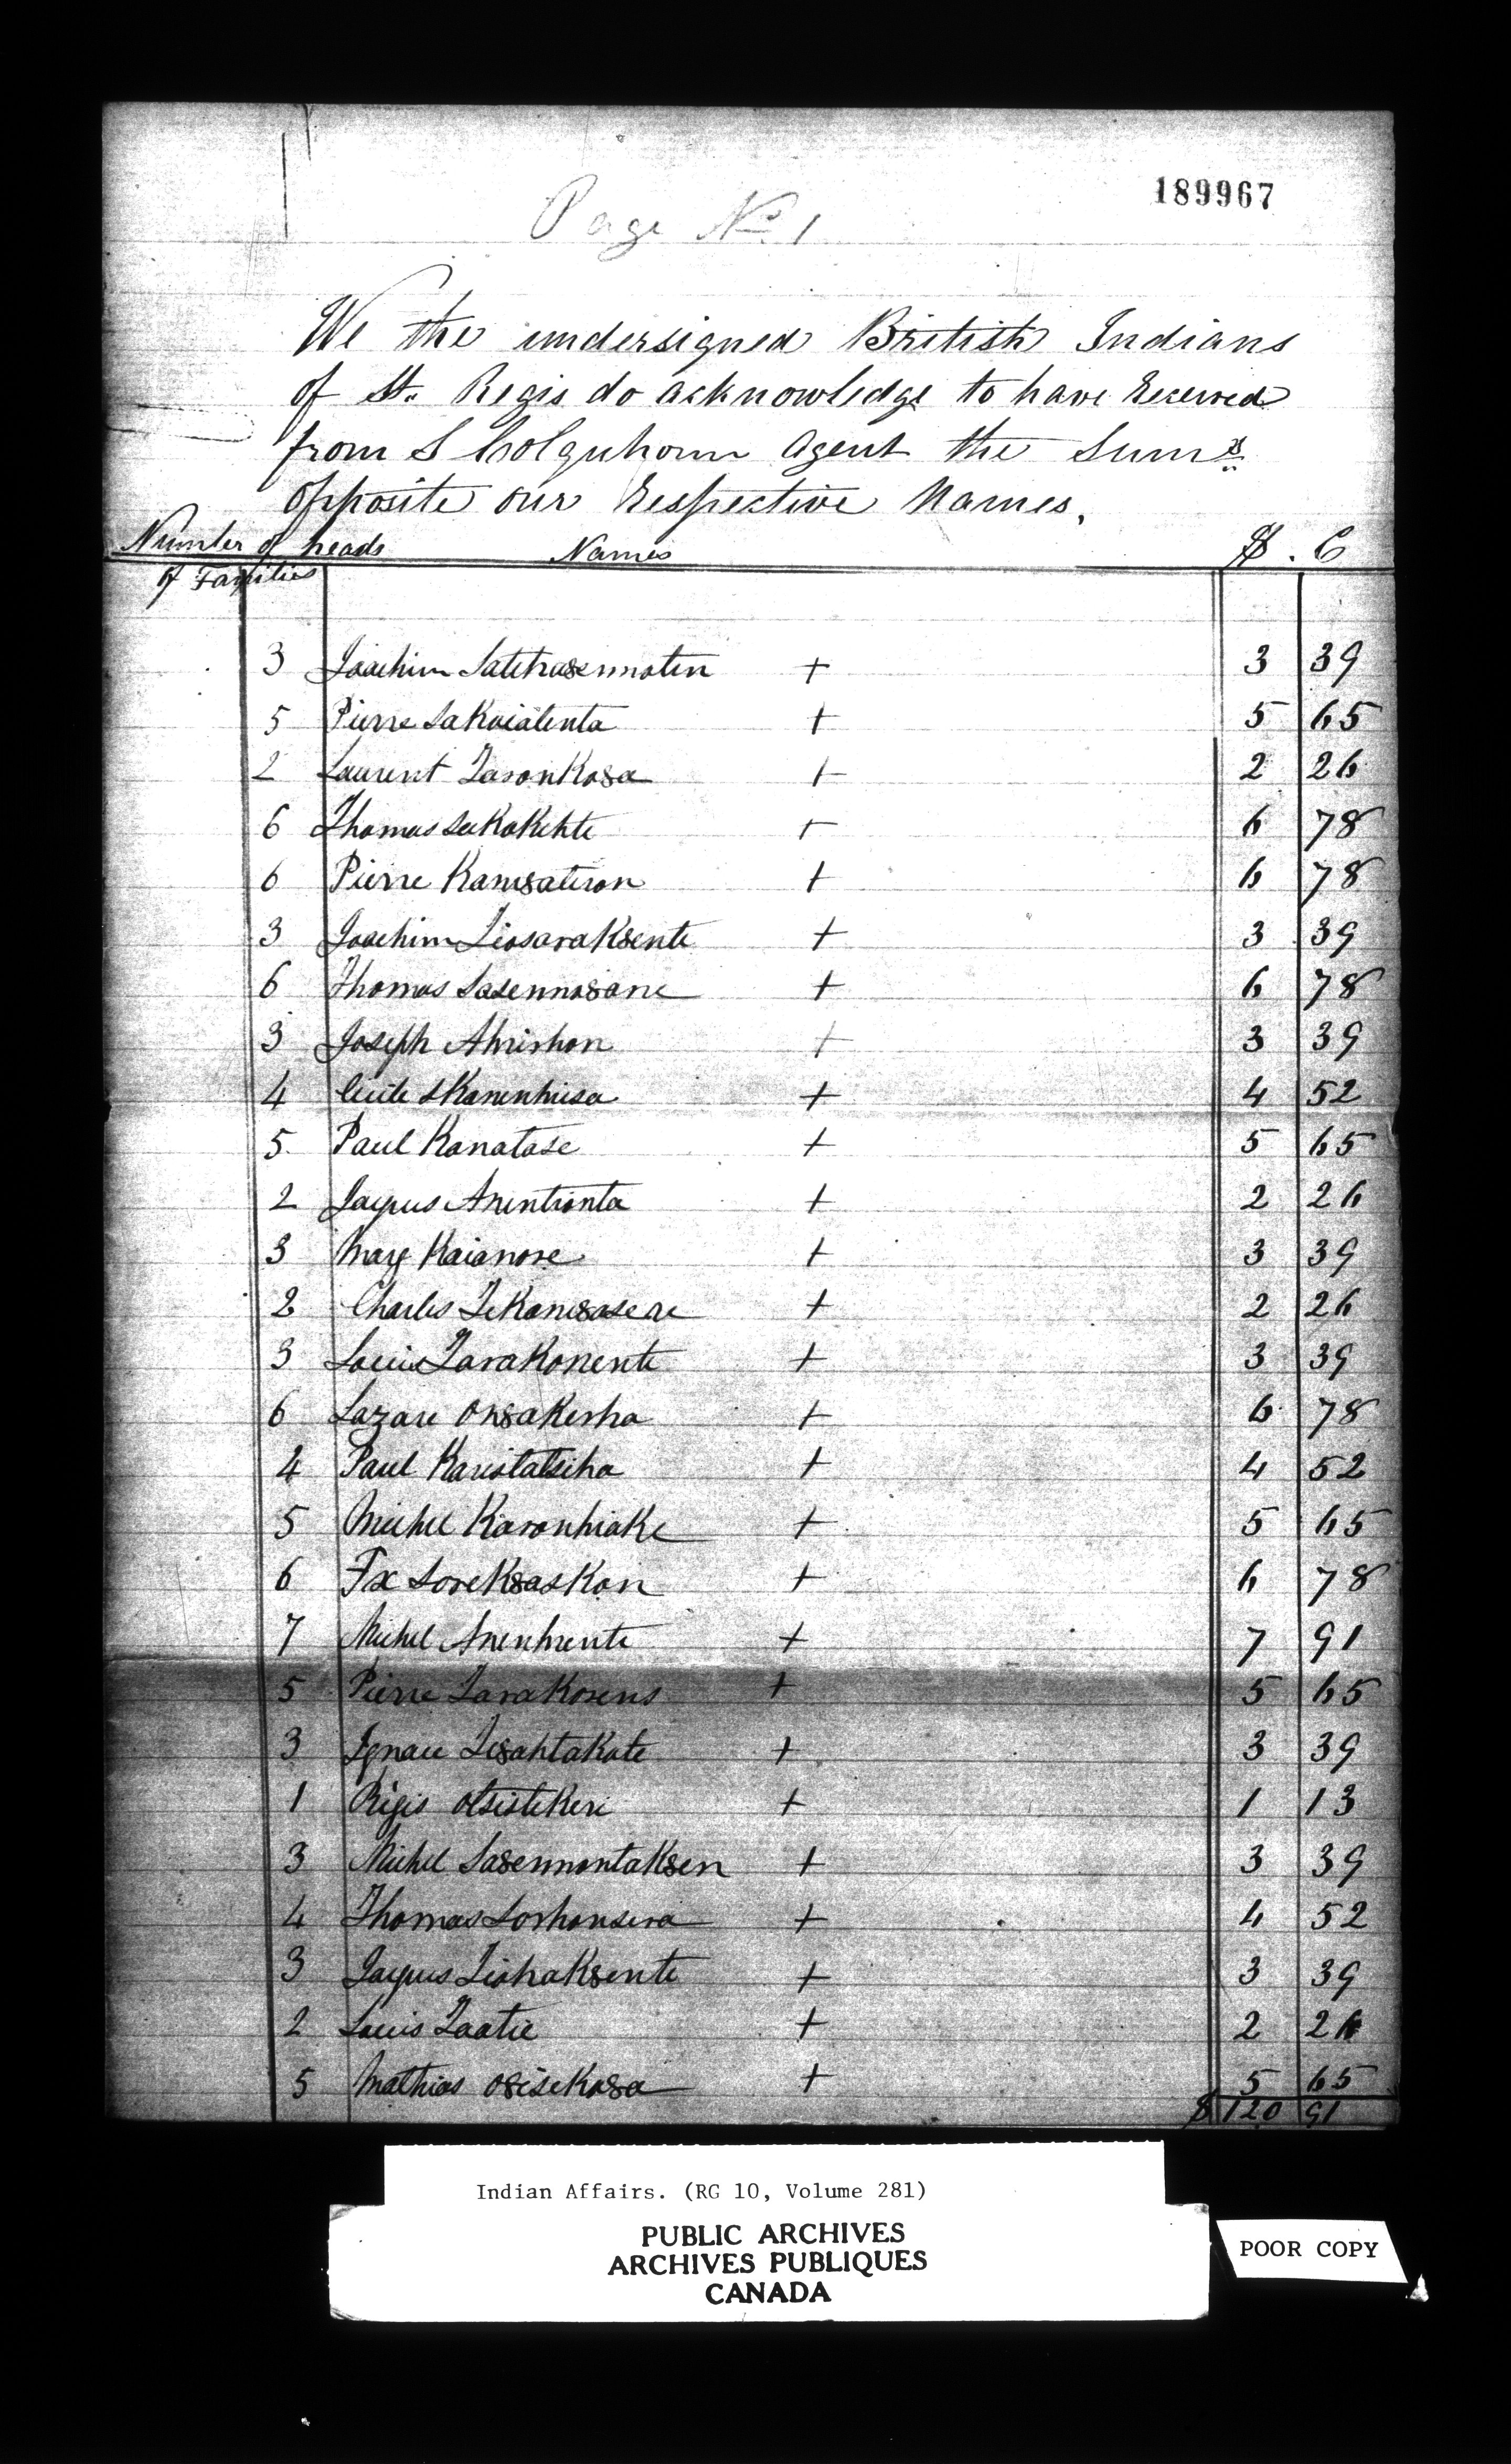 189967
Page No. 1
We the undersigned British Indians
of St. Regis do acknowledge to have Received
from S Colquhoun Agent the Sums
opposite our Respective Names.
Number of heads Names $ . C
of Families
3 Joachim + 3 39
5 Pierre Sakoiatenta + 5 65
2 Laurent Taronko8a + 2 26
6 Thomas Sakokehte + 6 78
6 Pierre + 6 78
3 Joachim Tiosarak8ente + 3 39
6 Thomas Sasenno8ane + 6 78
3 Joseph Ahrishon + 3 39
4 Cecile Skanenhiisa + 4 52
5 Paul Kanatase + 5 65
2 Jaques Anentionta + 2 26
3 Mary Kaianore + 3 39
2 Charles + 2 26
3 Louis Tarakonente + 3 39
6 Lazare + 6 78
4 Paul Karistatsiha + 4 52
5 Michel Karonhiake + 5 65
6 Fx Sorek8askon + 6 78
7 Michel Anenhente + 7 91
5 Pierre Tarakorens + 5 65
3 Ignace Te8ahtakate + 3 39
1 Régis Otsistekeri + 1 13
3 Michel Sa8ennontak8en + 3 39
4 Thomas Sorhonsera + 4 52
3 Jaques Tiohak8ente + 3 39
2 Louis Taatie + 2 26
5 Mathias O8iseko8a + 5 65
$ 120 91
Indian Affairs. (RG 10, Volume 281)
PUBLIC ARCHIVES
ARCHIVES PUBLIQUES
CANADA
POOR COPY